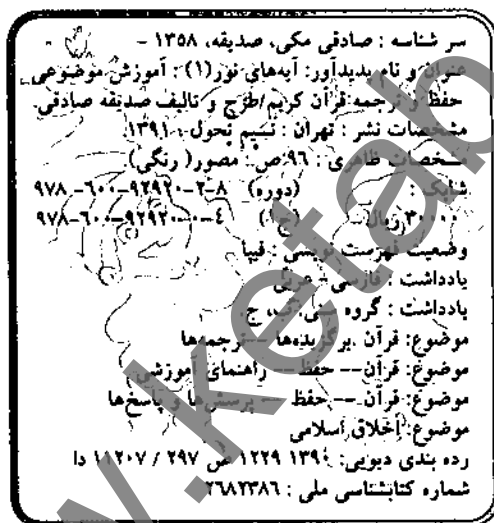 سر شناسه : صادقی مکی، صدیقه، ۱۳۵۸ -
عنوان و نام پدیدآور: آیه‌های نور(۱) : آموزش موضوعی
حفظ و ترجمه قرآن کریم/طرح و تالیف صدیقه صادقی.
مشخصات نشر : تهران : نسیم تحول ، ۱۳۹۱.
مشخصات ظاهری : ۹۶ ص. مصور( رنگی).
شابک : (دوره) ۸-۲-۹۲۹۲۰-۶۰۰-۹۷۸
۳۰۰۰۰ ریال (ج۱) ۴-۰-۹۲۹۲۰-۶۰۰-۹۷۸
وضعیت فهرست نویسی : فیپا
یادداشت : فارسی - عربی
یادداشت : گروه سنی: ب، ج.
موضوع: قرآن .برگزیده‌ها --ترجمه‌ها
موضوع: قرآن-- حفظ -- راهنمای آموزشی
موضوع: قرآن -- حفظ -- پرسش‌ها و پاسخ‌ها
موضوع: اخلاق اسلامی
رده بندی دیویی: ۱۳۹۱ ۱۲۲۹ ص ۲۹۷ / ۱۱۲۰۷ دا
شماره کتابشناسی ملی : ۲۶۸۲۳۸۶
w.ketab